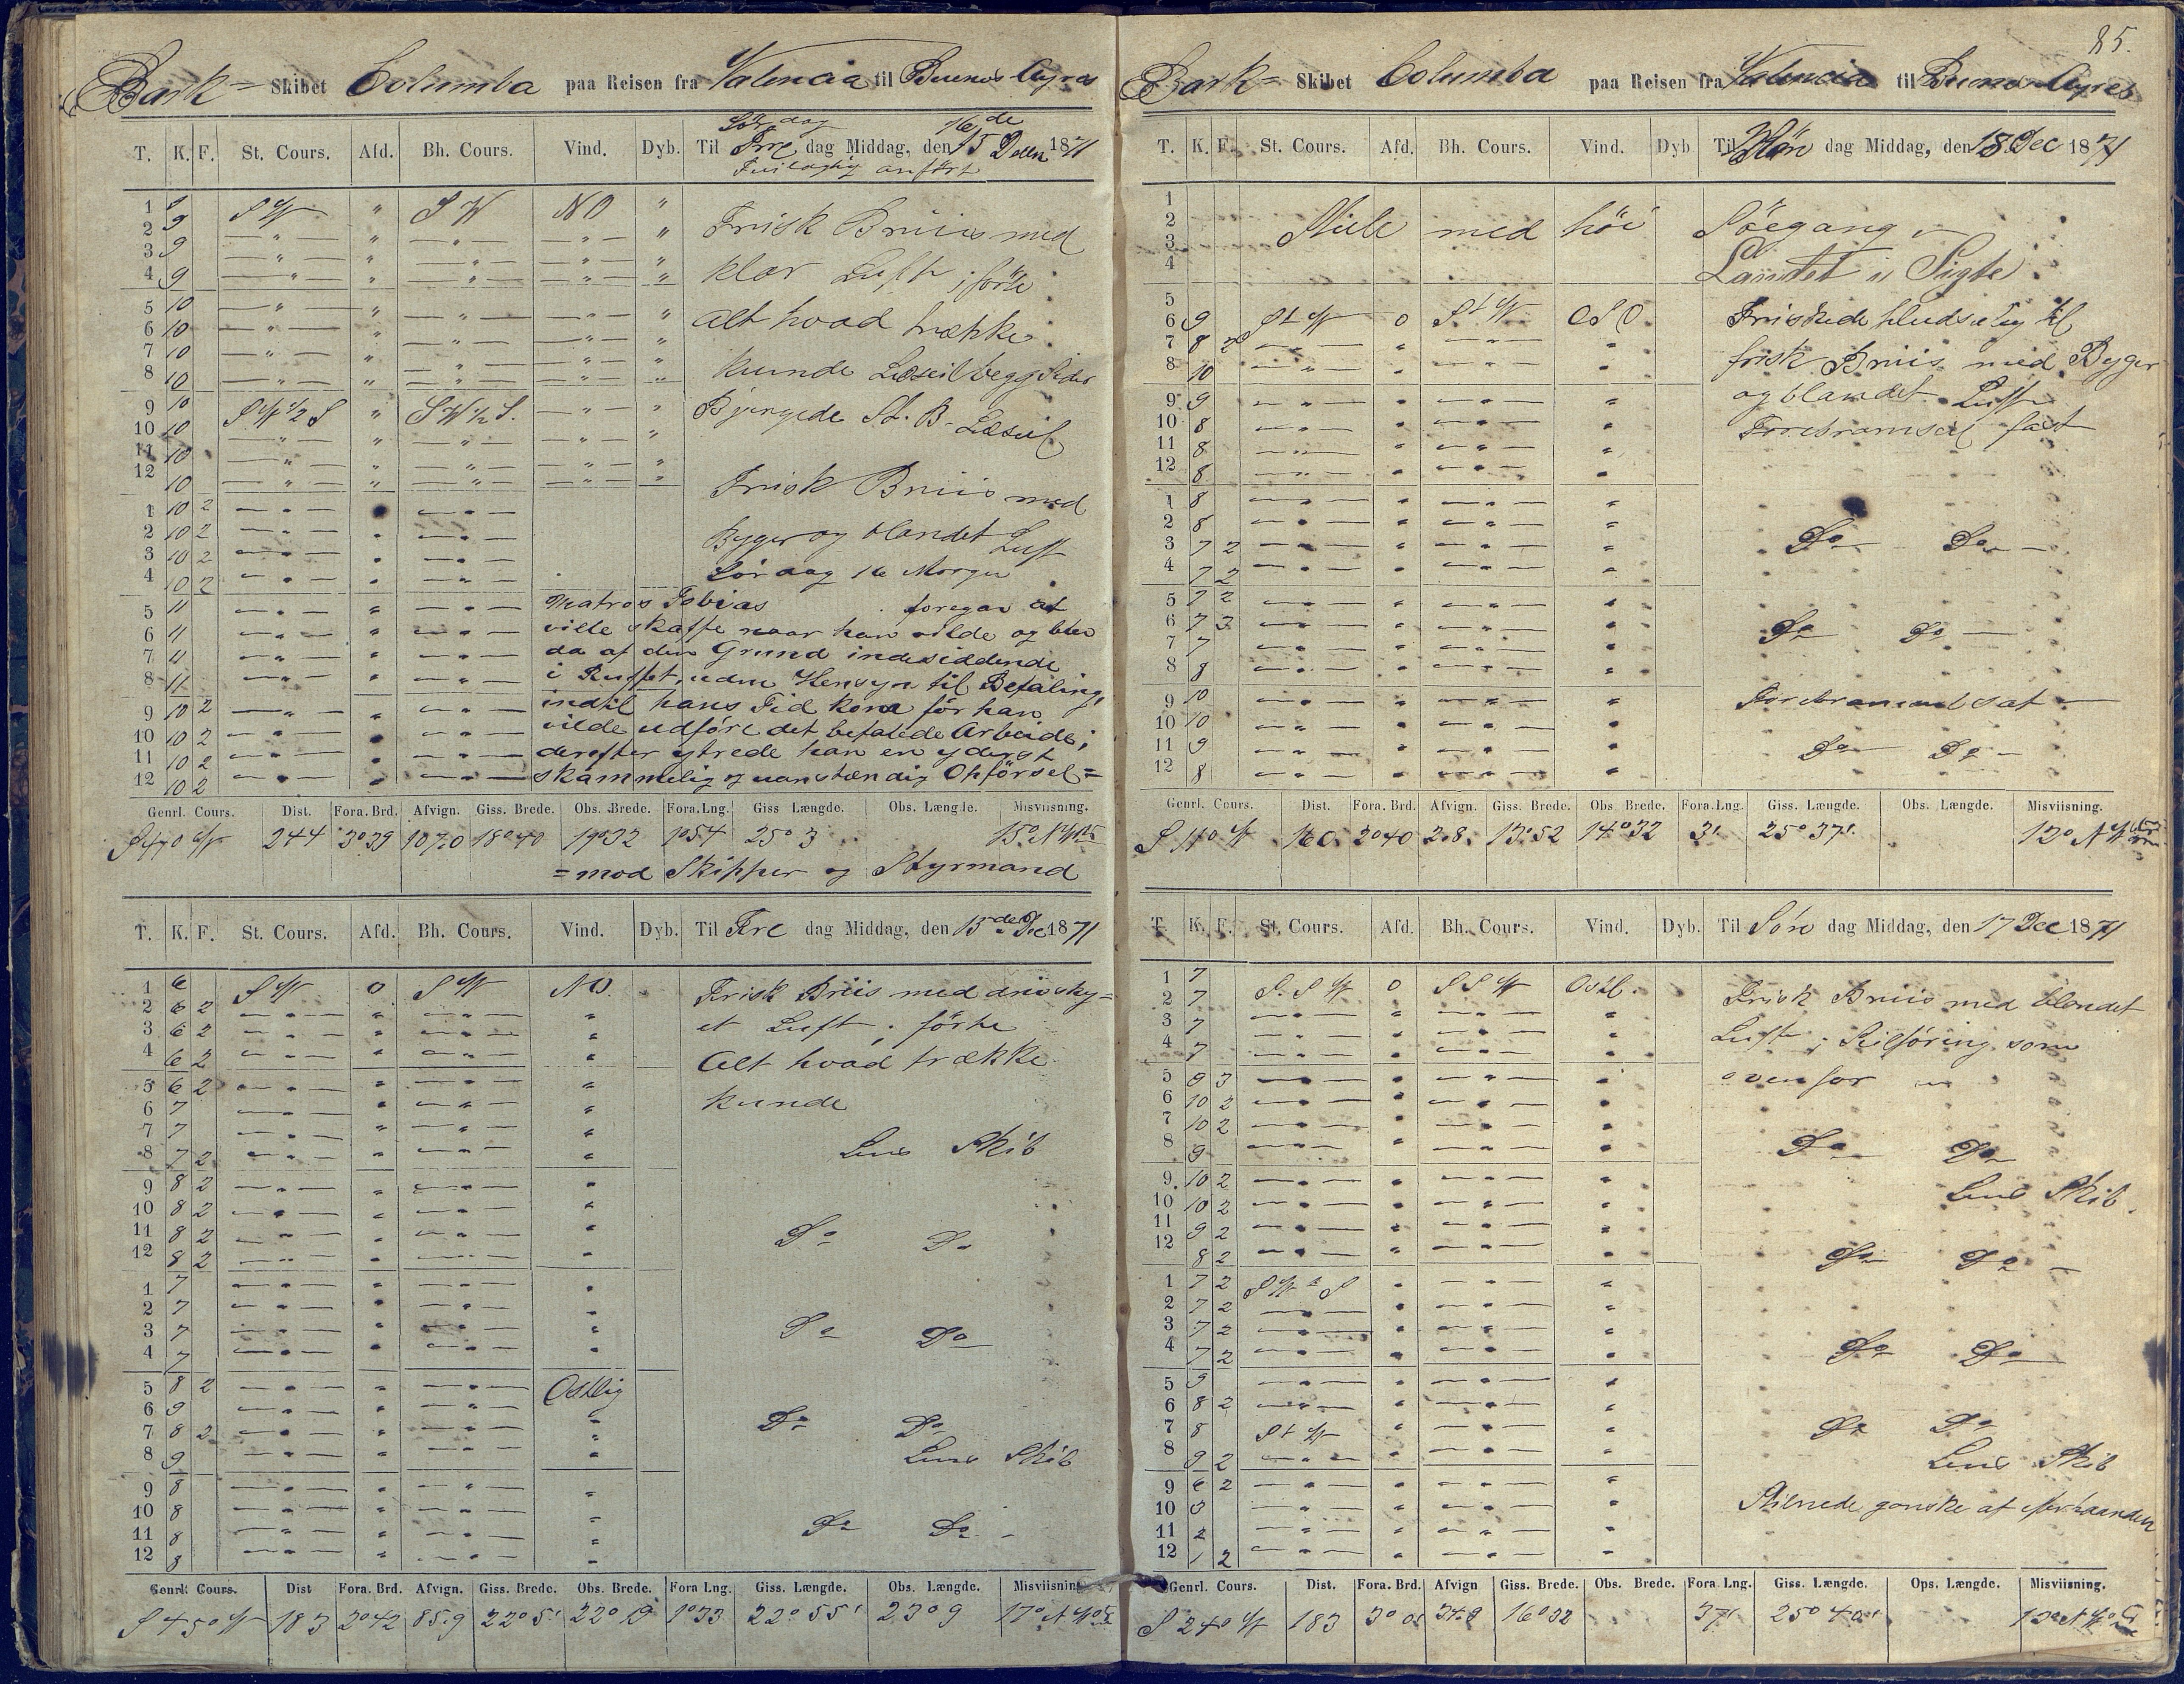 85.
Bark= Skibet Columba paa Reisen fra Valencia til Buenos Ayres
T. K. F. St. Cours. Afd. Bh. Cours. Vind. Dyb. Til Fre dag Middag, den 15 Decbr 1871
Lördag 16de
Feilagtig anfört
1 9 SW " SW NO "
2 9
3 9
4 9
5 10
6 10
7 10
8 10
9 10 SW 1/2 S " SW 1/2 S.
10 10
11 10
12 10
1 10 2
2 10 2
3 10 2
4 10 2
5 11
6 11
7 11
8 11
9 10 2
10 10 2
11 10 2
12 10 2
Frisk Briis med
klar Luft ; förte
alt hvad trække
kunde Læseil begg Sider
Bjergede St. B. Læseil
Frisk Briis med
Byger og blandet Luft
Lördag 16 Morgen
Matros Tobias foregav at
ville skaffe naar han vilde og blev
da af den Grund indesiddende
i Ruffet, uden Hensyn til Befaling,
indtil hans Tid kom för han
vilde udföre det befalede Arbeide;
derefter ytrede han en yderst
skammelig og uanstændig Opförsel=
Genrl. Cours. Dist. Fora. Brd. Afvign. Giss. Brede. Obs. Brede. Fora. Lng. Giss Længde. Obs. Længde. Misviisning.
S 47° W 244 3°39 107.0 18°40 19°32 1°54 25° 3 15° NW
=mod Skipper og Styrmand
T. K. F. St. Cours. Afd. Bh. Cours. Vind. Dyb. Til Fre dag Middag, den 15de Dec 1871
1 6 SW 0 SW NO.
2 6 2
3 6 2
4 6 2
5 6 2
6 7
7 7
8 7 2
9 8 2
10 8 2
11 8 2
12 8 2
1 7
2 7
3 7
4 7
5 8 2 Ostlig
6 9
7 8 2
8 9
9 8
10 8
11 8
12 8
Frisk Briis med drivsky=
et Luft ; förte
Alt hvad trække
kunde
Lens Skib
Do Do
Do Do
Do Do
Lens Skib
Do Do
Genrl. Cours. Dist Fora. Brd. Afvign. Giss. Brede. Obs. Brede. Fora Lng. Giss. Længde. Obs. Længde. Misviisning
S 45° W 183 2°42 85.9 22°5' 22°19 1°33 22°55' 23°9 17° NW
Bark= Skibet Columba paa Reisen fra Valencia til Buenos Ayres
T. K. F. St. Cours. Afd. Bh. Cours. Vind. Dyb Til Man dag Middag, den 18. Dec 1871
1
2
3
4
5
6 9 StW 0 StW OSO.
7 8 2
8 10
9 9
10 8
11 8
12 8
1 8
2 8
3 7 2
4 7 2
5 7 2
6 7 3
7 7
8 8
9 10
10 10
11 9
12 8
Stille med höi Söegang
Landet i Sigte
Friskede pludselig til
frisk Briis med Byger
og blandet Luft
Forebramseil fast
Do Do
Do Do
Forebramseil sat
Do Do
Genrl. Cours. Dist. Fora. Brd. Afvign. Giss. Brede. Obs Brede. Fora. Lng. Giss. Længde. Obs. Længde. Misviisning.
S 11° W 160. 2°40 2.8. 13°52 14°32 3' 25°37'. 12° NW
T. K. F. St. Cours. Afd. Bh. Cours. Vind. Dyb. Til Sön dag Middag, den 17 Dec 1871
1 7 S.S W 0 SSW Ostl.
2 7
3 7
4 7
5 9 3
6 10 2
7 10 2
8 9
9 10 2
10 10 2
11 9 2
12 8 2
1 7 2
2 7 2
3 7 2
4 7 2
5 9
6 8 2
7 8 StW
8 9 2
9 6 2
10 3
11 2
12 1 2
Frisk Briis med blandet
Luft ; Seilföring som
ovenfor
Do Do
Lens Skib.
Do Do
Do Do
Do Do
Lens Skib
Stilnede ganske af efterhaanden
Genrl. Cours. Dist. Fora. Brd. Afvign Giss. Brede. Obs. Brede. Fora Lng. Giss. Længde. Ops. Længde. Misviisning.
S 24° W 183 16°32 37' 25°40'